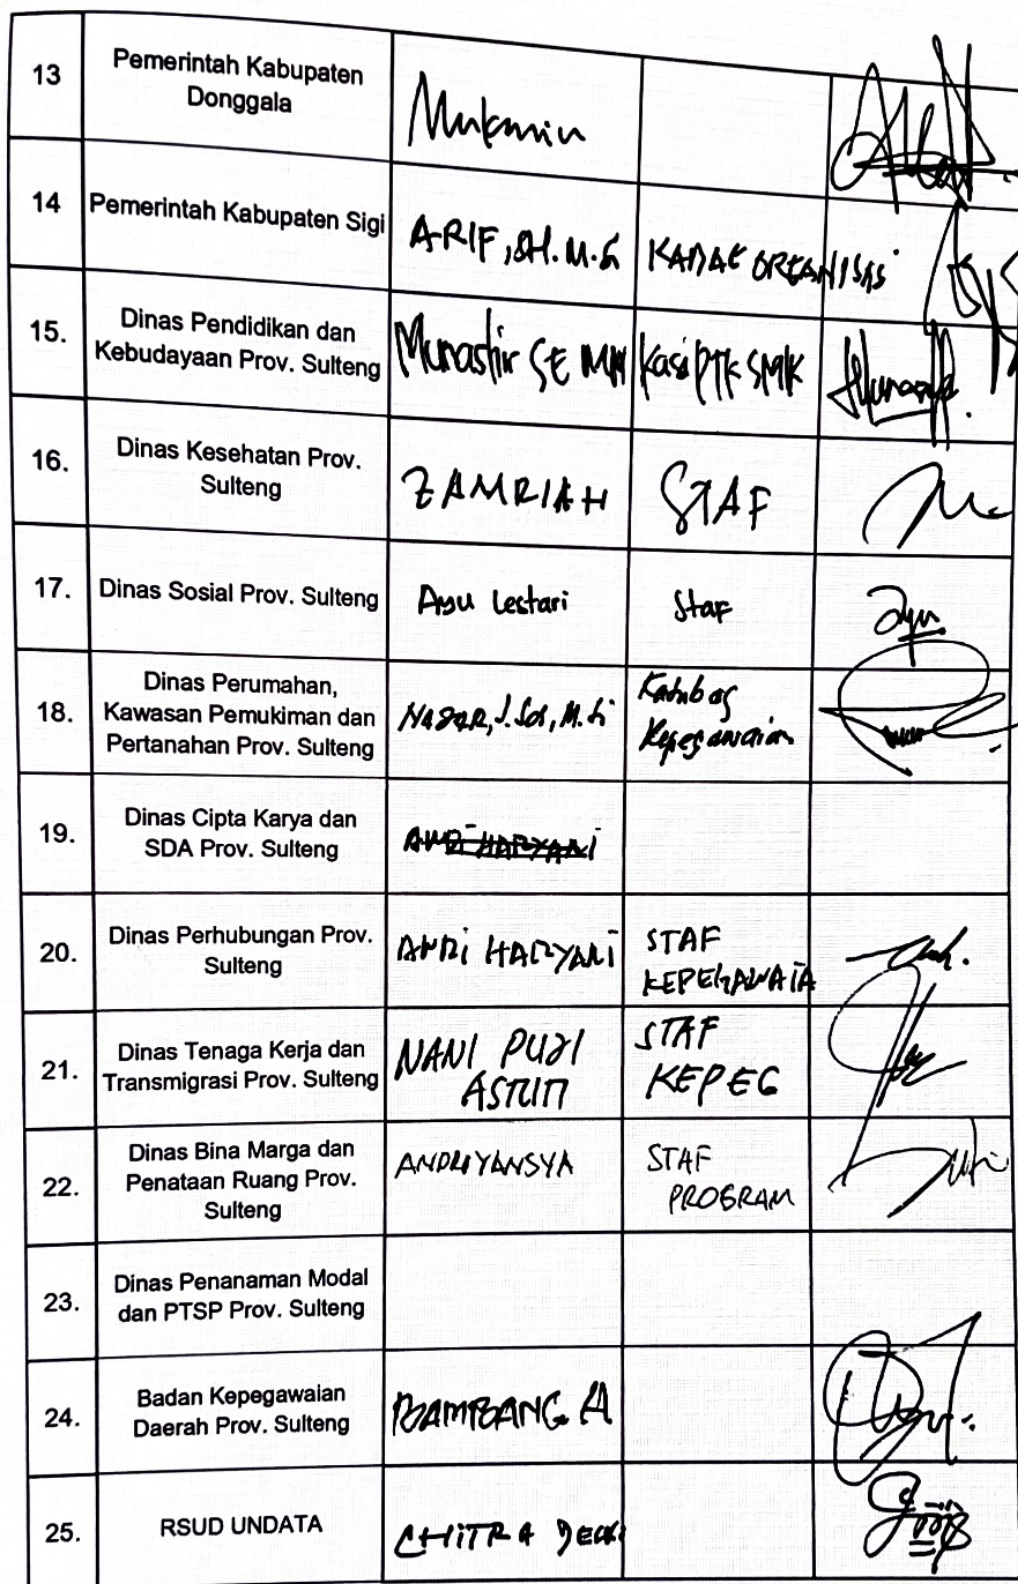 13
Pemerintah Kabupaten
Donggala
14
Pemerintah Kabupaten Sigi
ARIF, SH. M.
15.
Dinas Pendidikan dan
Kebudayaan Prov. Sulteng
SE MM
Kasi PTK SMK
16.
Dinas Kesehatan Prov.
Sulteng
ZAMRIAH
STAF
17.
Dinas Sosial Prov. Sulteng
Ayu Lestari
Staf
Ayu
18.
Dinas Perumahan,
Kawasan Pemukiman dan
Pertanahan Prov. Sulteng
19.
Dinas Cipta Karya dan
SDA Prov. Sulteng
20.
Dinas Perhubungan Prov.
Sulteng
ANDI HARYANI
STAF
KEPEGAWAIA
21.
Dinas Tenaga Kerja dan
Transmigrasi Prov. Sulteng
NANI PUJI
STAF
KEPEG
22.
Dinas Bina Marga dan
Penataan Ruang Prov.
Sulteng
ANDRIYANSYA
STAF
PROGRAM
23.
Dinas Penanaman Modal
dan PTSP Prov. Sulteng
24.
Badan Kepegawaian
Daerah Prov. Sulteng
BAMBANG A
25.
RSUD UNDATA
CHITRA